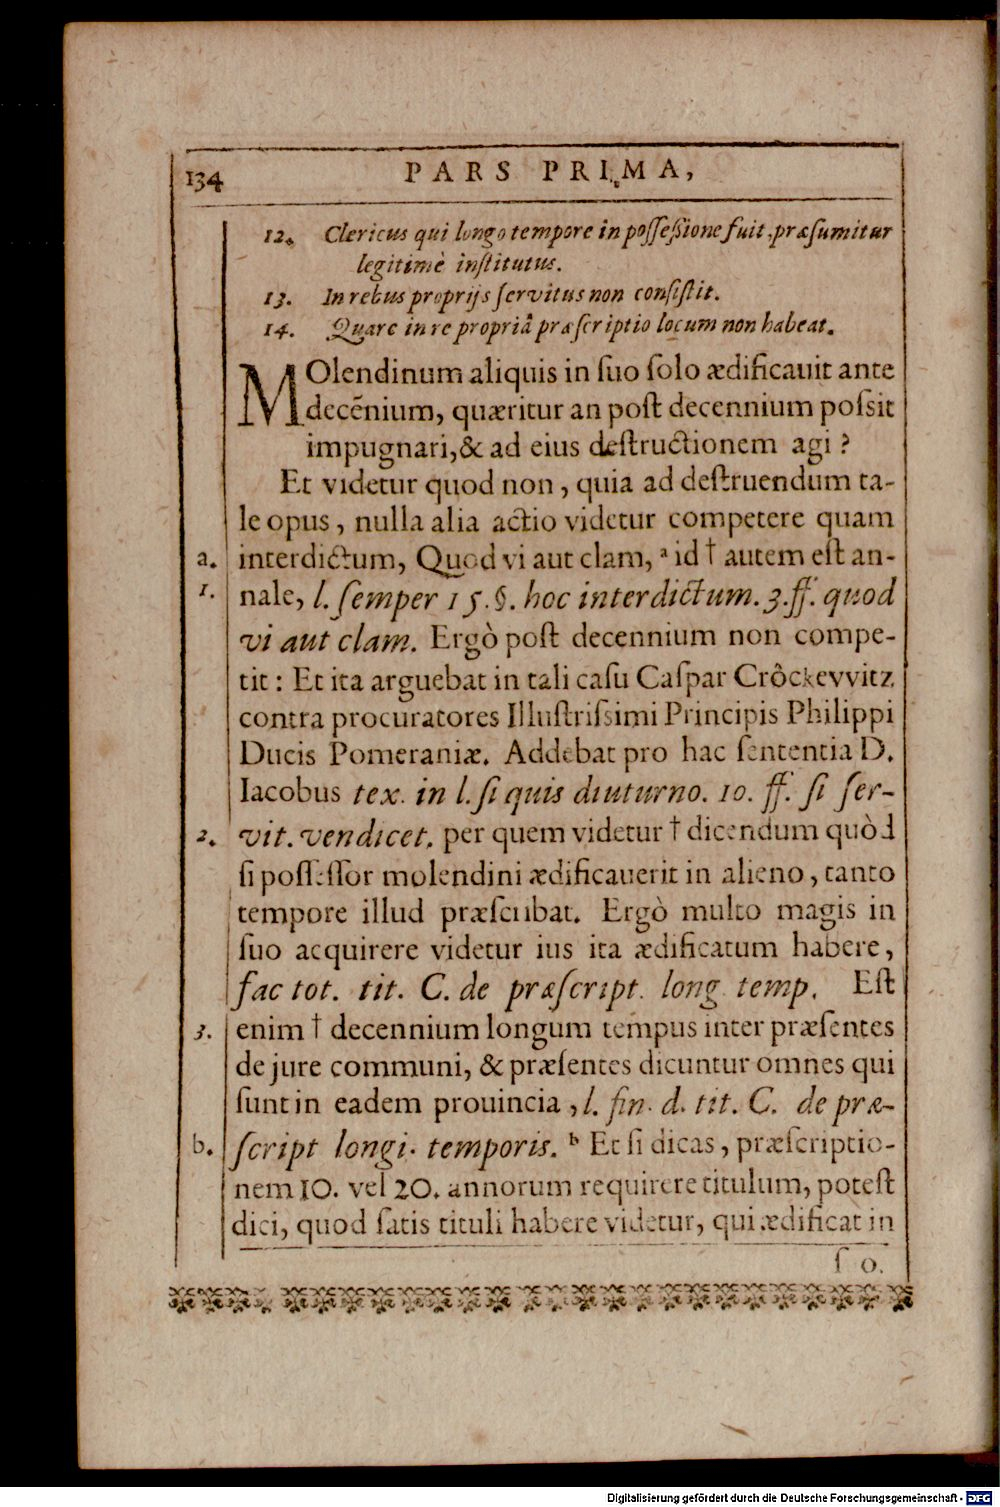 134 PARS PRIMA,
12. Clericus qui longo tempore in poſſeßione fuit, præſumitur
legitimè inſtitutus.
13. In rebus proprijs ſervitus non conſiſtit.
14. Quare in re propriâ præſcriptio locum non habeat.
MOlendinum aliquis in ſuo ſolo ædificavit ante
decẽnium, quæritur an poſt decennium poſsit
impugnari, & ad eius deſtructionem agi?
Et videtur quod non, quia ad deſtruendum ta-
le opus, nulla alia actio videtur competere quam
a. interdictum, Quod vi aut clam, ᵃ id † autem eſt an-
1. nale, l. ſemper 15. §. hoc interdictum. 3. ff. quod
vi aut clam. Ergò poſt decennium non compe-
tit: Et ita arguebat in tali caſu Caſpar Crôckevvitz
contra procuratores Illuſtriſsimi Principis Philippi
Ducis Pomeraniæ. Addebat pro hac ſententia D.
Iacobus tex. in l. ſi quis diuturno. 10. ff. ſi ſer-
2. vit. vendicet. per quem videtur † dicendum quòd
ſi poſſeſſor molendini ædificauerit in alieno, tanto
tempore illud præſcribat. Ergò multo magis in
ſuo acquirere videtur ius ita ædificatum habere,
fac tot. tit. C. de præſcript. long. temp. Eſt
3. enim † decennium longum tempus inter præſentes
de jure communi, & præſentes dicuntur omnes qui
ſunt in eadem prouincia, l. fin. d. tit. C. de præ-
b. ſcript longi. temporis. ᵇ Et ſi dicas, præſcriptio-
nem 10. vel 20. annorum requirere titulum, poteſt
dici, quod ſatis tituli habere videtur, qui ædificat in
ſ o.
Digitalisierung gefördert durch die Deutsche Forschungsgemeinschaft - DFG